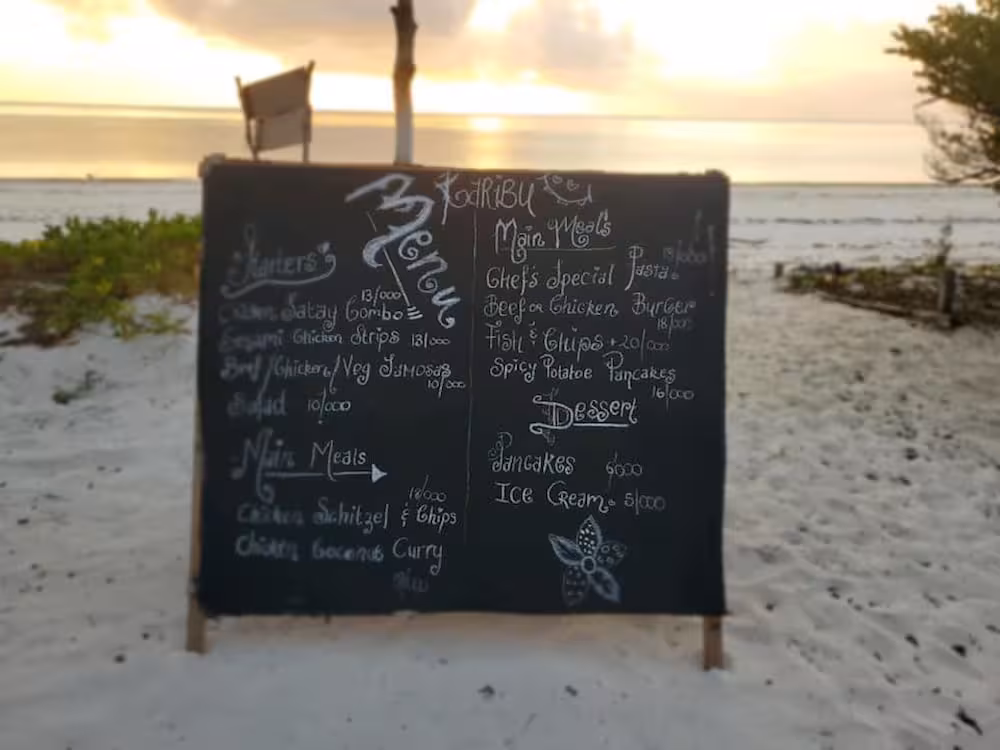 Menu
KARIBU
Starters
13/000
Chicken Satay Combo
Sesami Chicken Strips 13/000
Beef/Chicken/Veg Samosas
10/000
Salad 10/000
Main Meals
18/000
Chicken Schitzel & Chips
Chicken Coconut Curry
Main Meals
Chef's Special Pasta
Beef or Chicken Burger
18/000
Fish & Chips 20/000
Spicy Potatoe Pancakes
16/000
Dessert
Pancakes 6/000
Ice Cream 5/000